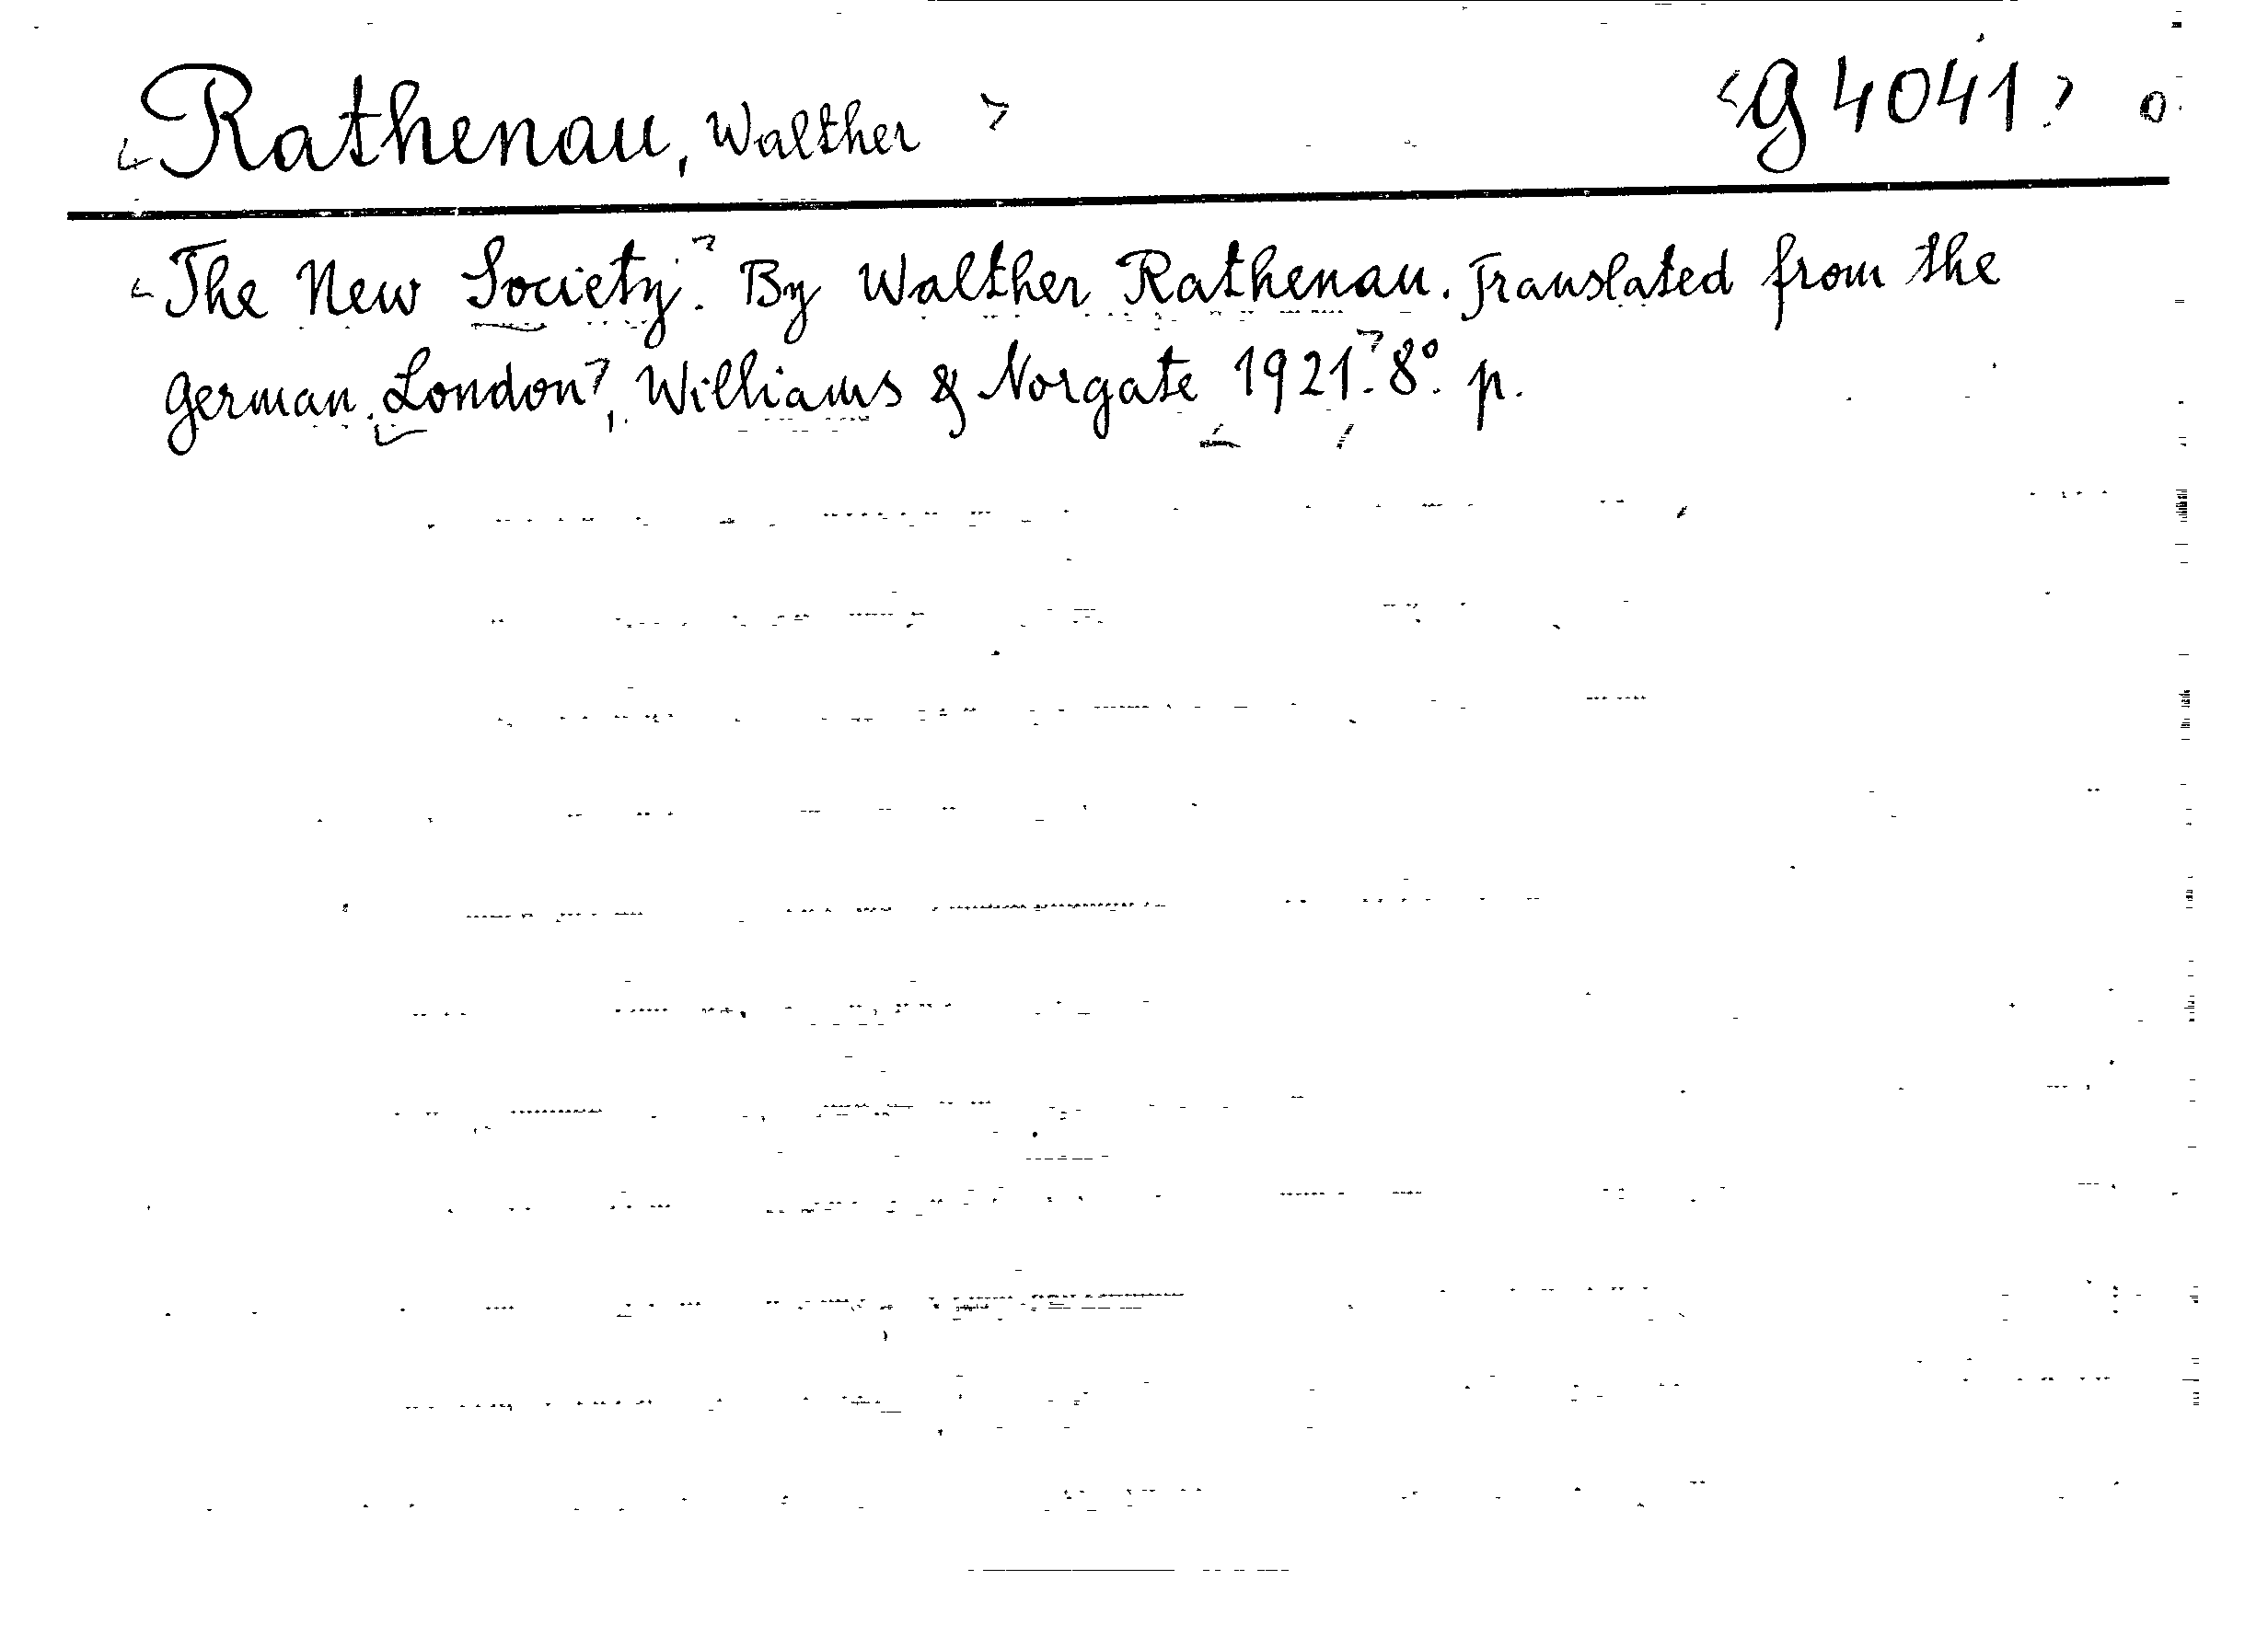 Rathenau, Walther g 4041 o
The New Society. By Walther Rathenau. Translated from the
German. London, Williams & Norgate 1921. 8°. p.